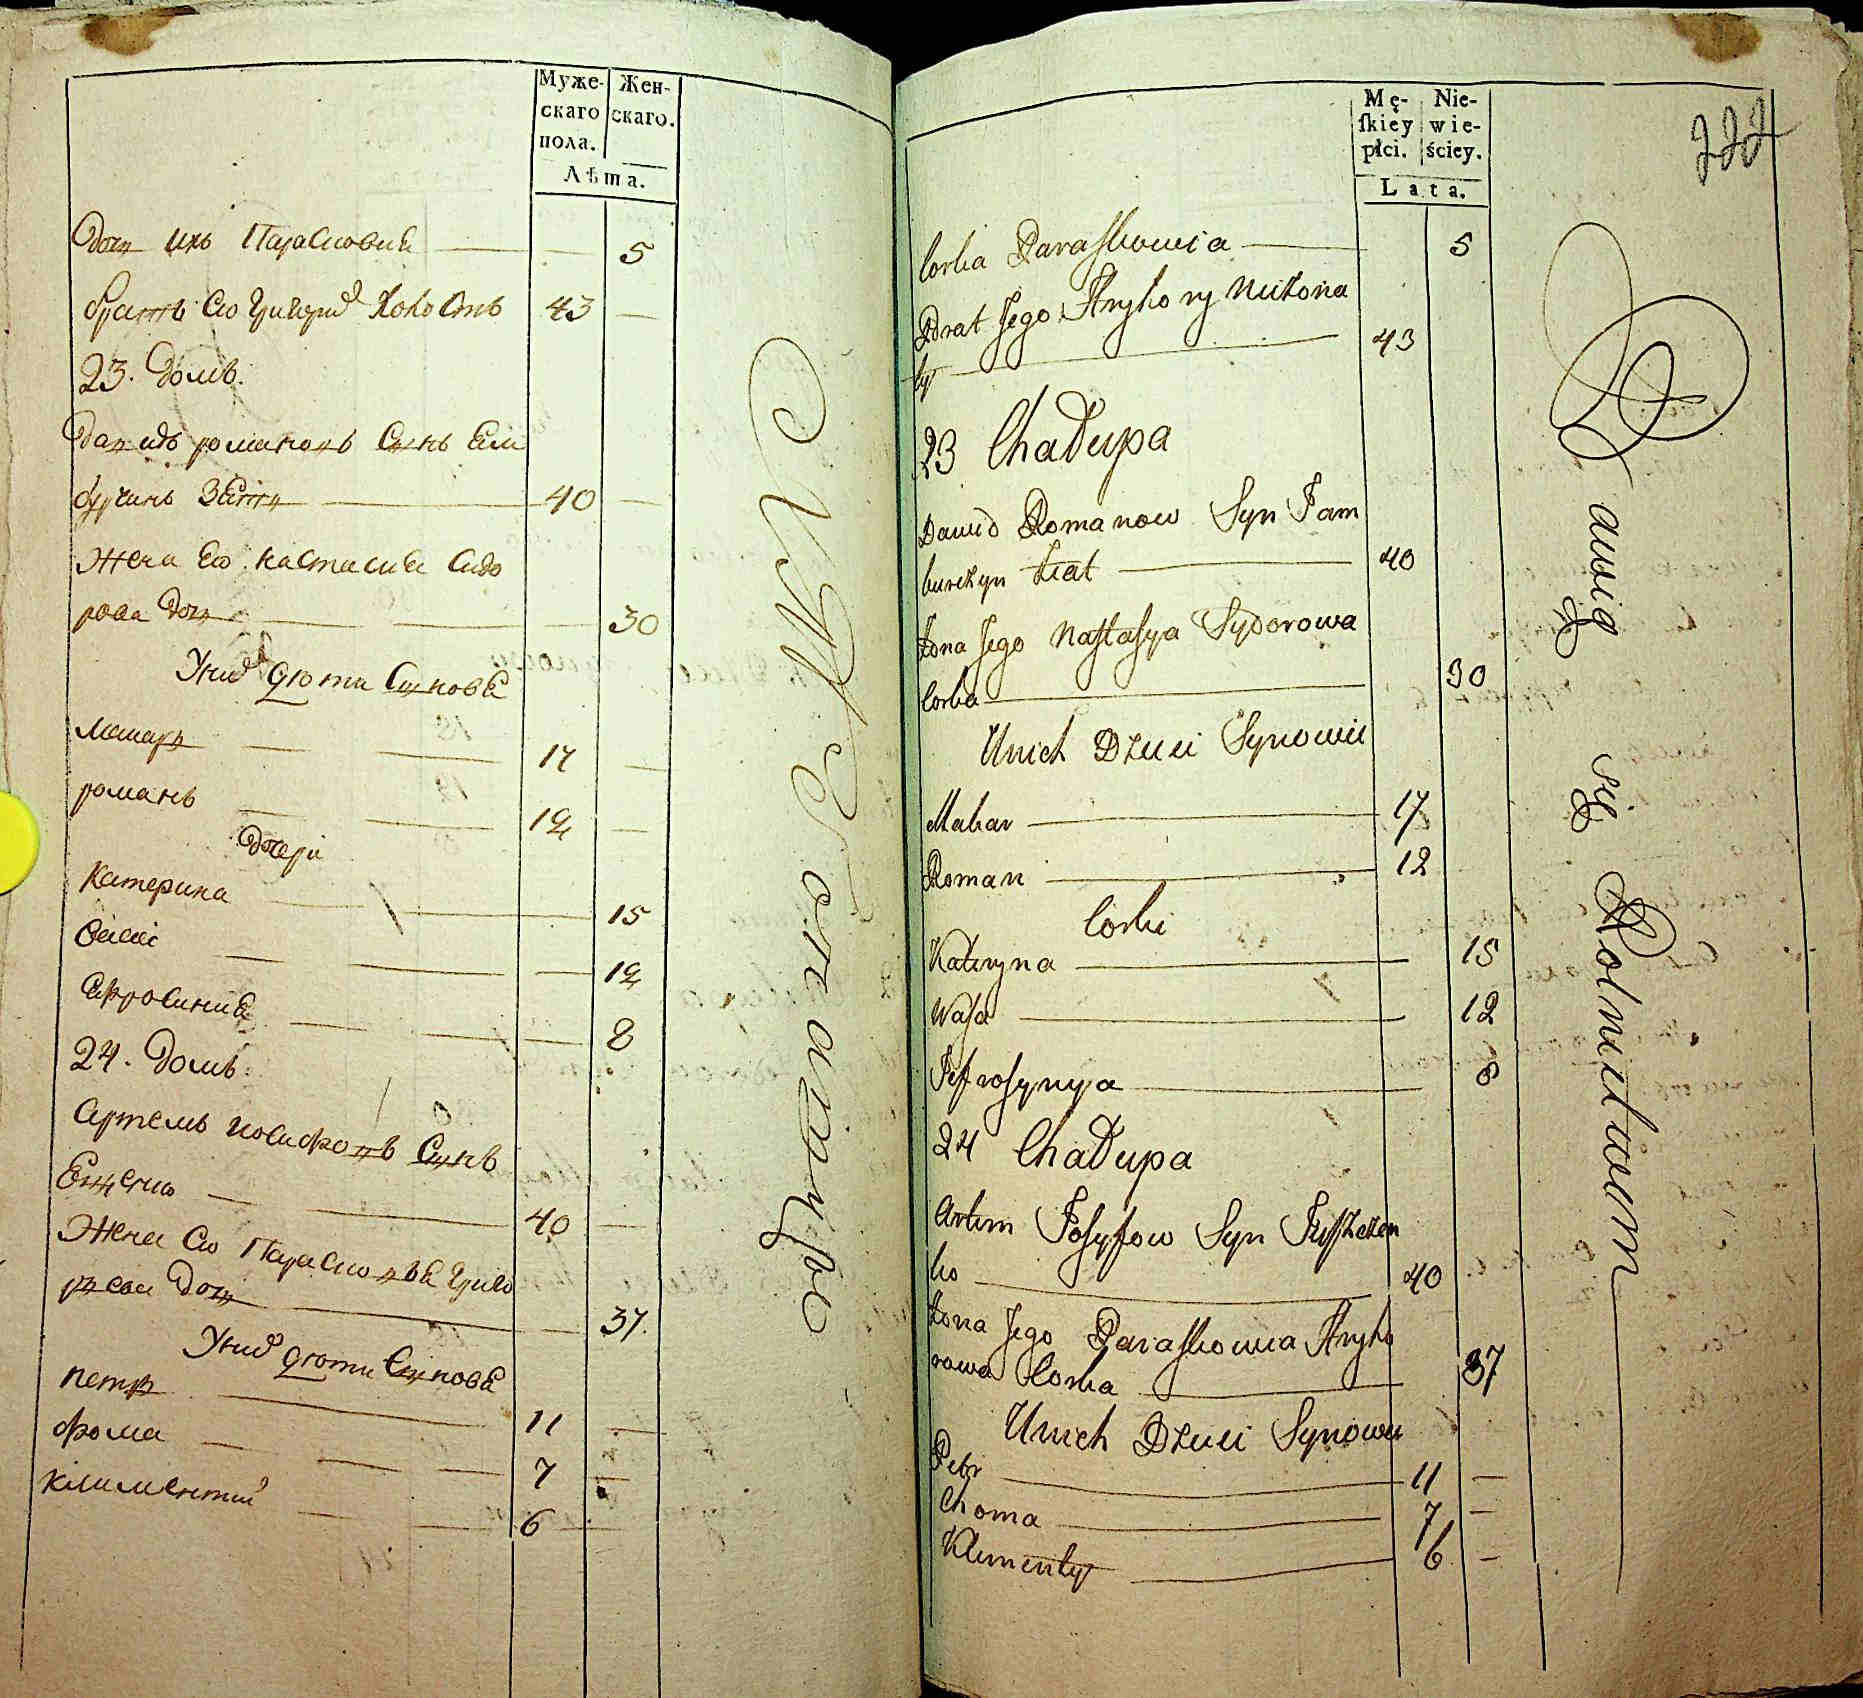 Муже-
скаго
пола.
Жен-
скаго.
Лѣта.
Дочь ихъ Парасковия 5
братъ его Григорий Холостъ 43
23. Домъ.
Давидъ романовъ Сынъ Ям
бурчинъ Зять 40
Жена Его настасия Сидо
рова Дочь 30
У них дѣти Сыновя
Макаръ 17
романъ 12
Дочери
Катерина 15
12
Ефросиния 8
24. Домъ.
Артемъ иосифовъ Сынъ
40
Жена Его Парасковья Григо
рьева Дочь 37.
У них дѣти Сыновя
петръ 11
фома 7
Климентий 6
Mę-
skiey
płci.
Nie-
wie-
ściey.
Lata.
222
Corka Paraskowia 5
Brat Jego Hryhory Nieżona
ty 43
23 Chałupa
Dawid Romanow Syn Jam
burczyn Ziat 40
Żona Jego Nastasya Sydorowa
Corka 30
Unich Dzieci Synowie
Makar 17
Roman 12
Corki
Kateryna 15
Wasa 12
Jefrosynya 8
24 Chałupa
Artem Josyfow Syn
ko 40
Żona Jego Paraskowia Hryho
rowa Corka 37
Unich Dzieci Synowie
Petr 11
Choma 7
Klimenty 6
Bawią się Rolnictwem